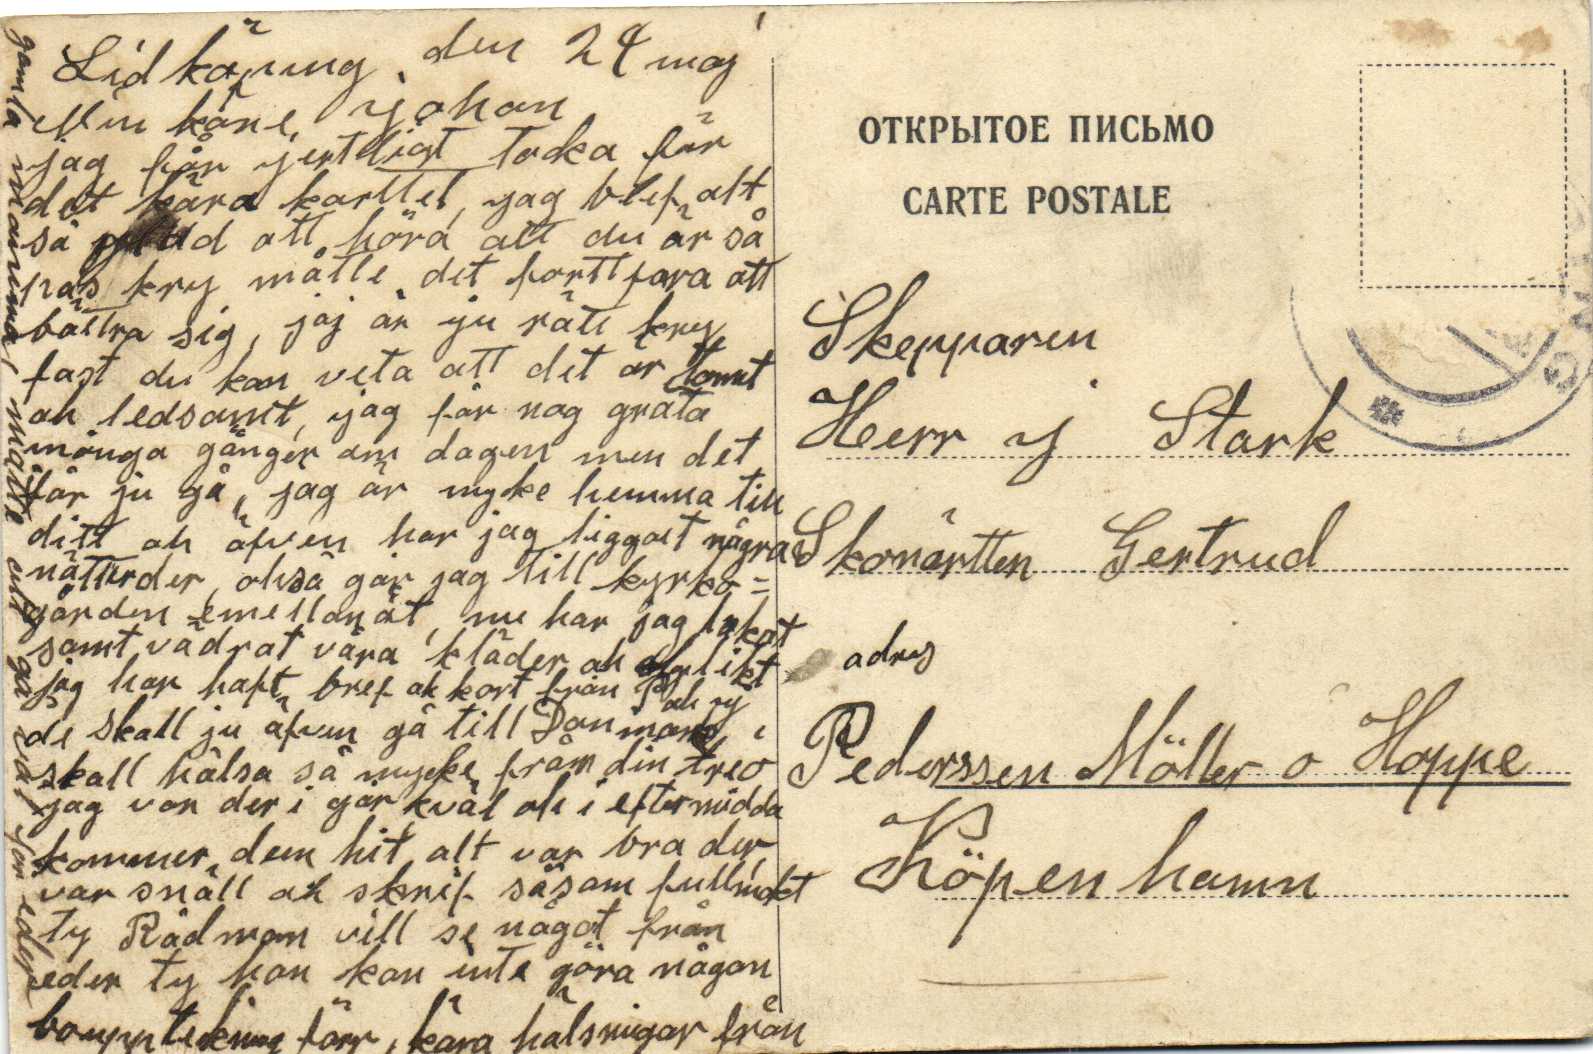 Lidköping den 24 maj
Min käre johan
jag får jertligt tacka får
det kära korttet, jag blef alt
så glad att höra att du är så
pås kry måtte det forttfara att
battra sig, jag är ju rätt kry
fast du kan veta att det är tomt
ok ledsamt, jag får nog gråta
många gånger om dagen men det
får ju gå, jag är myke hemma till
ditt ok äfven har jag liggat några
nätter der, okså går jag till kyrko=
gården emellanåt, nu har jag
samt vädrat våra kläder ok
jag har haft bref ok kort från
de skall ju äfven gå till Danmark, i
skall hälsa så mycke från din
jag var der i går kväl ok i eftermidda
kommer dem hit, alt var bra der
var snäll ok skrif såsom fullmakt
ty Rådman vill se något från
eder ty han kan inte göra någon
förr, kära hälsningar från
gamla mamma, måtte
ОТКРЫТОЕ ПИСЬМО
CARTE POSTALE
Skepparen
Herr j Stark
Skonärtten Gertrud
adres
Pederssen Möller o Hoppe
Köpenhamn